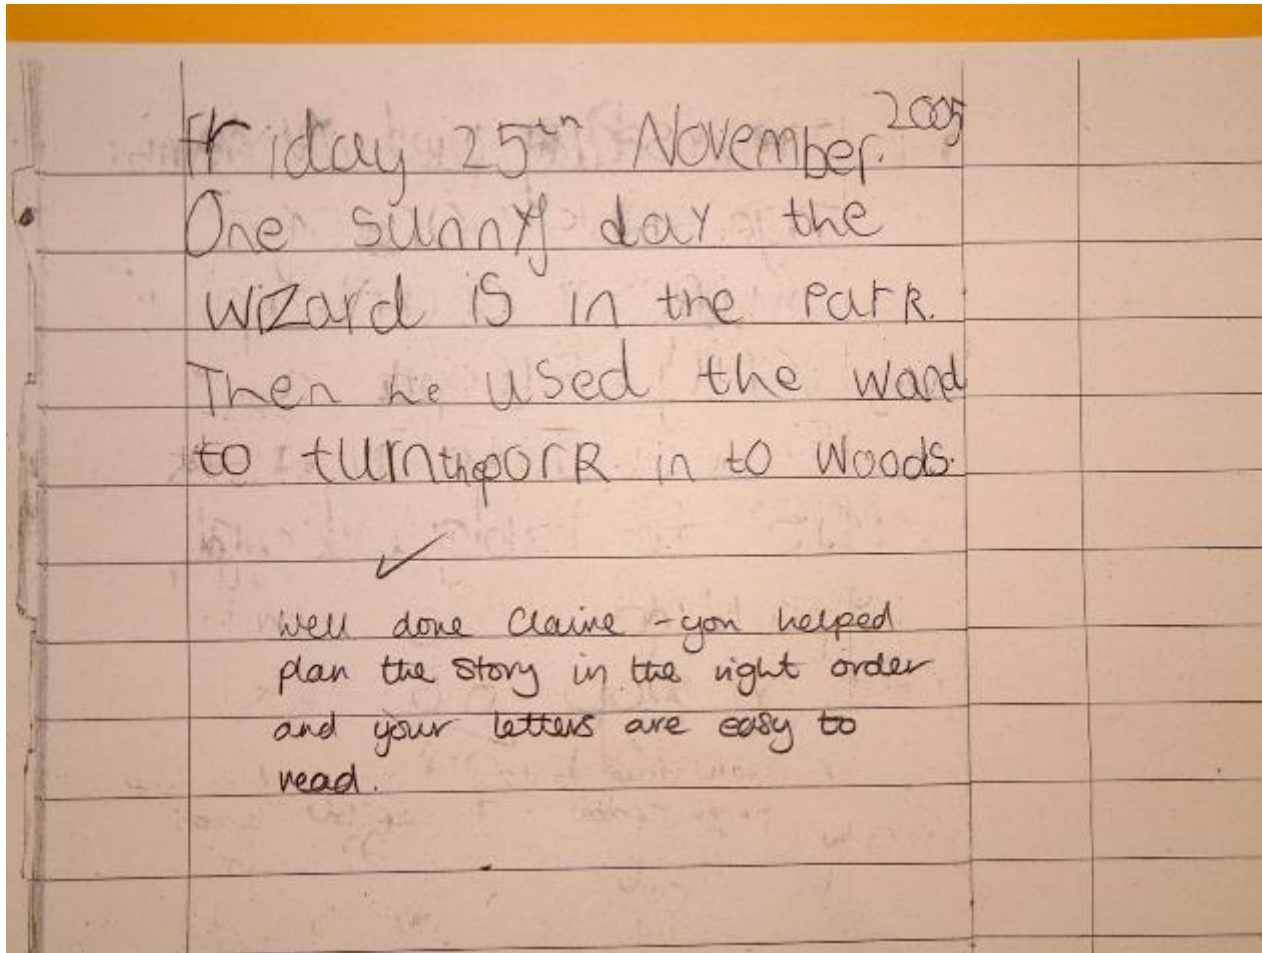 Friday 25th November. 2005
One sunny day the
wizard is in the park.
Then he used the wand
to turn the park in to woods.
Well done Claire - you helped
plan the story in the right order
and your letters are easy to
read.